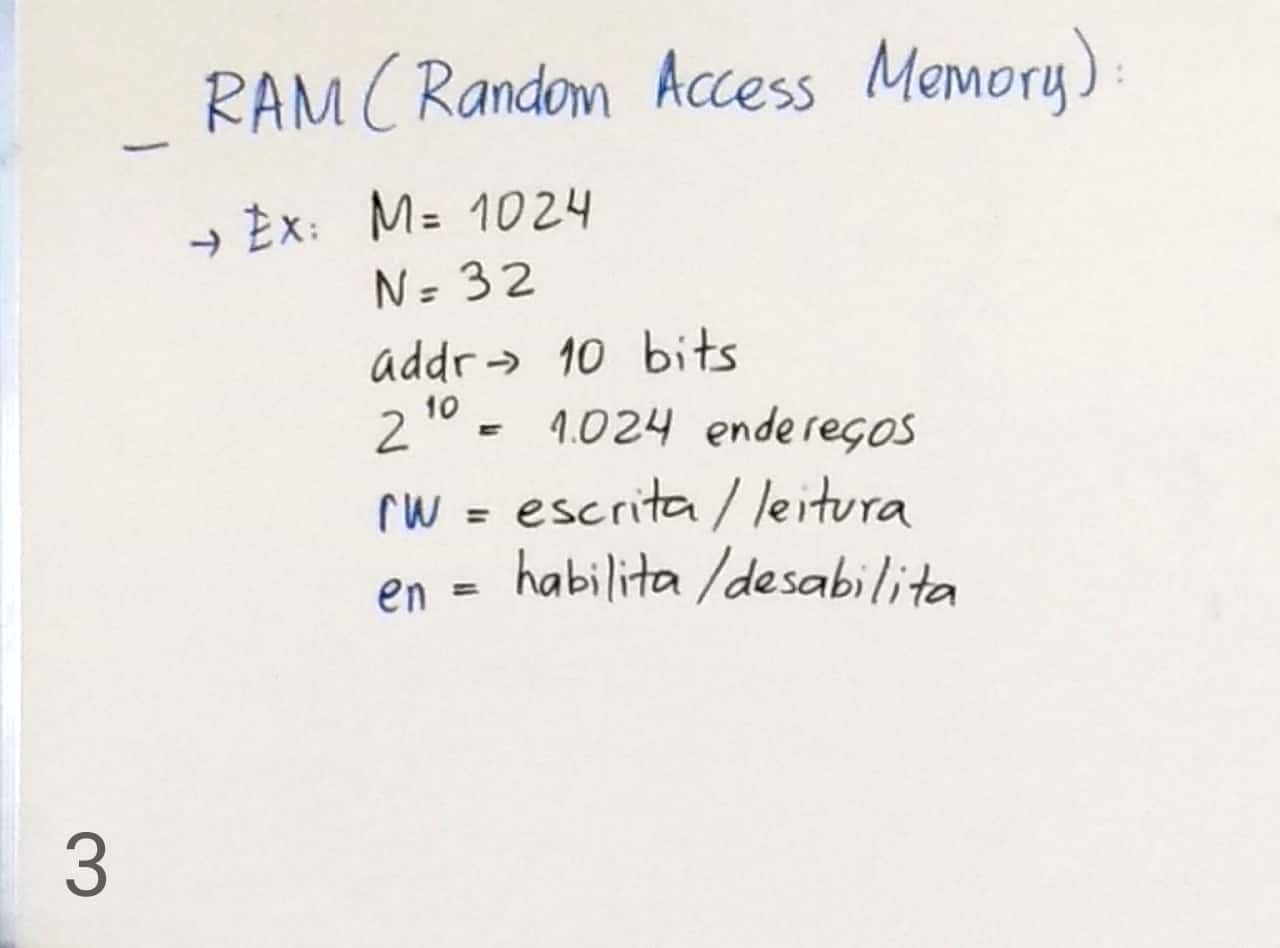 _ RAM (Random Access Memory):
→ Ex: M = 1024
N = 32
addr → 10 bits
2¹⁰ = 1.024 endereços
rw = escrita / leitura
en = habilita / desabilita
3